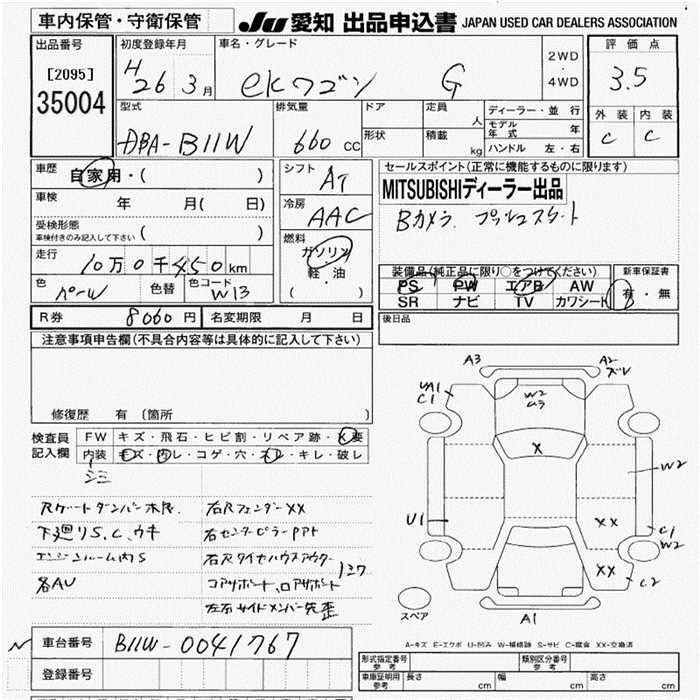 車内保管・守衛保管
JU 愛知 出品申込書 JAPAN USED CAR DEALERS ASSOCIATION
出品番号
[2095]
35004
初度登録年月
H26 3月
車名・グレード
eKワゴン G
2WD
・
4WD
評価点
3.5
外装 内装
C C
型式
DBA-B11W
排気量
660 CC
ドア
形状
定員 人
積載 kg
ディーラー・並行
モデル年式 年
ハンドル 左・右
車歴
自家用・( )
車検 年 月( 日)
受検形態
車検付きのみ記入して下さい ( )
走行
10万0千450km
色 パール
色替
色コード W13
シフト AT
冷房 AAC
燃料
ガソリン
軽・油
( )
セールスポイント(正常に機能するものに限ります)
MITSUBISHIディーラー出品
Bカメラ プッシュスタート
装備品(純正品に限り○をつけてください)
PS PW エアB AW
SR ナビ TV カワシート
新車保証書
有・無
R券 8060円
名変期限 月 日
後日品
注意事項申告欄(不具合内容等は具体的に記入して下さい)
修復歴 有 (箇所 )
検査員
記入欄
FW キズ・飛石・ヒビ割・リペア跡・X要
内装 キズ・汚レ・コゲ・穴・スレ・キレ・破レ
シミ
下廻りS.C、ウキ
エンジンルーム内S
各AU
右Rフェンダー XX
右センターピラーPアト
右RタイヤハウスアウターA3
A2
ズレ
UA1
C1
W2
ムラ
X
W2
U1
XX
C1
W2
XX
C2
A1
スペア
A-キズ E-エクボ U-凹み W-補修跡 S-サビ C-腐食 XX-交換済
車台番号 B11W-0041767
登録番号
形式指定番号
参考
類別区分番号
参考
車庫証明用
参考
長さ cm
幅 cm
高さ cm